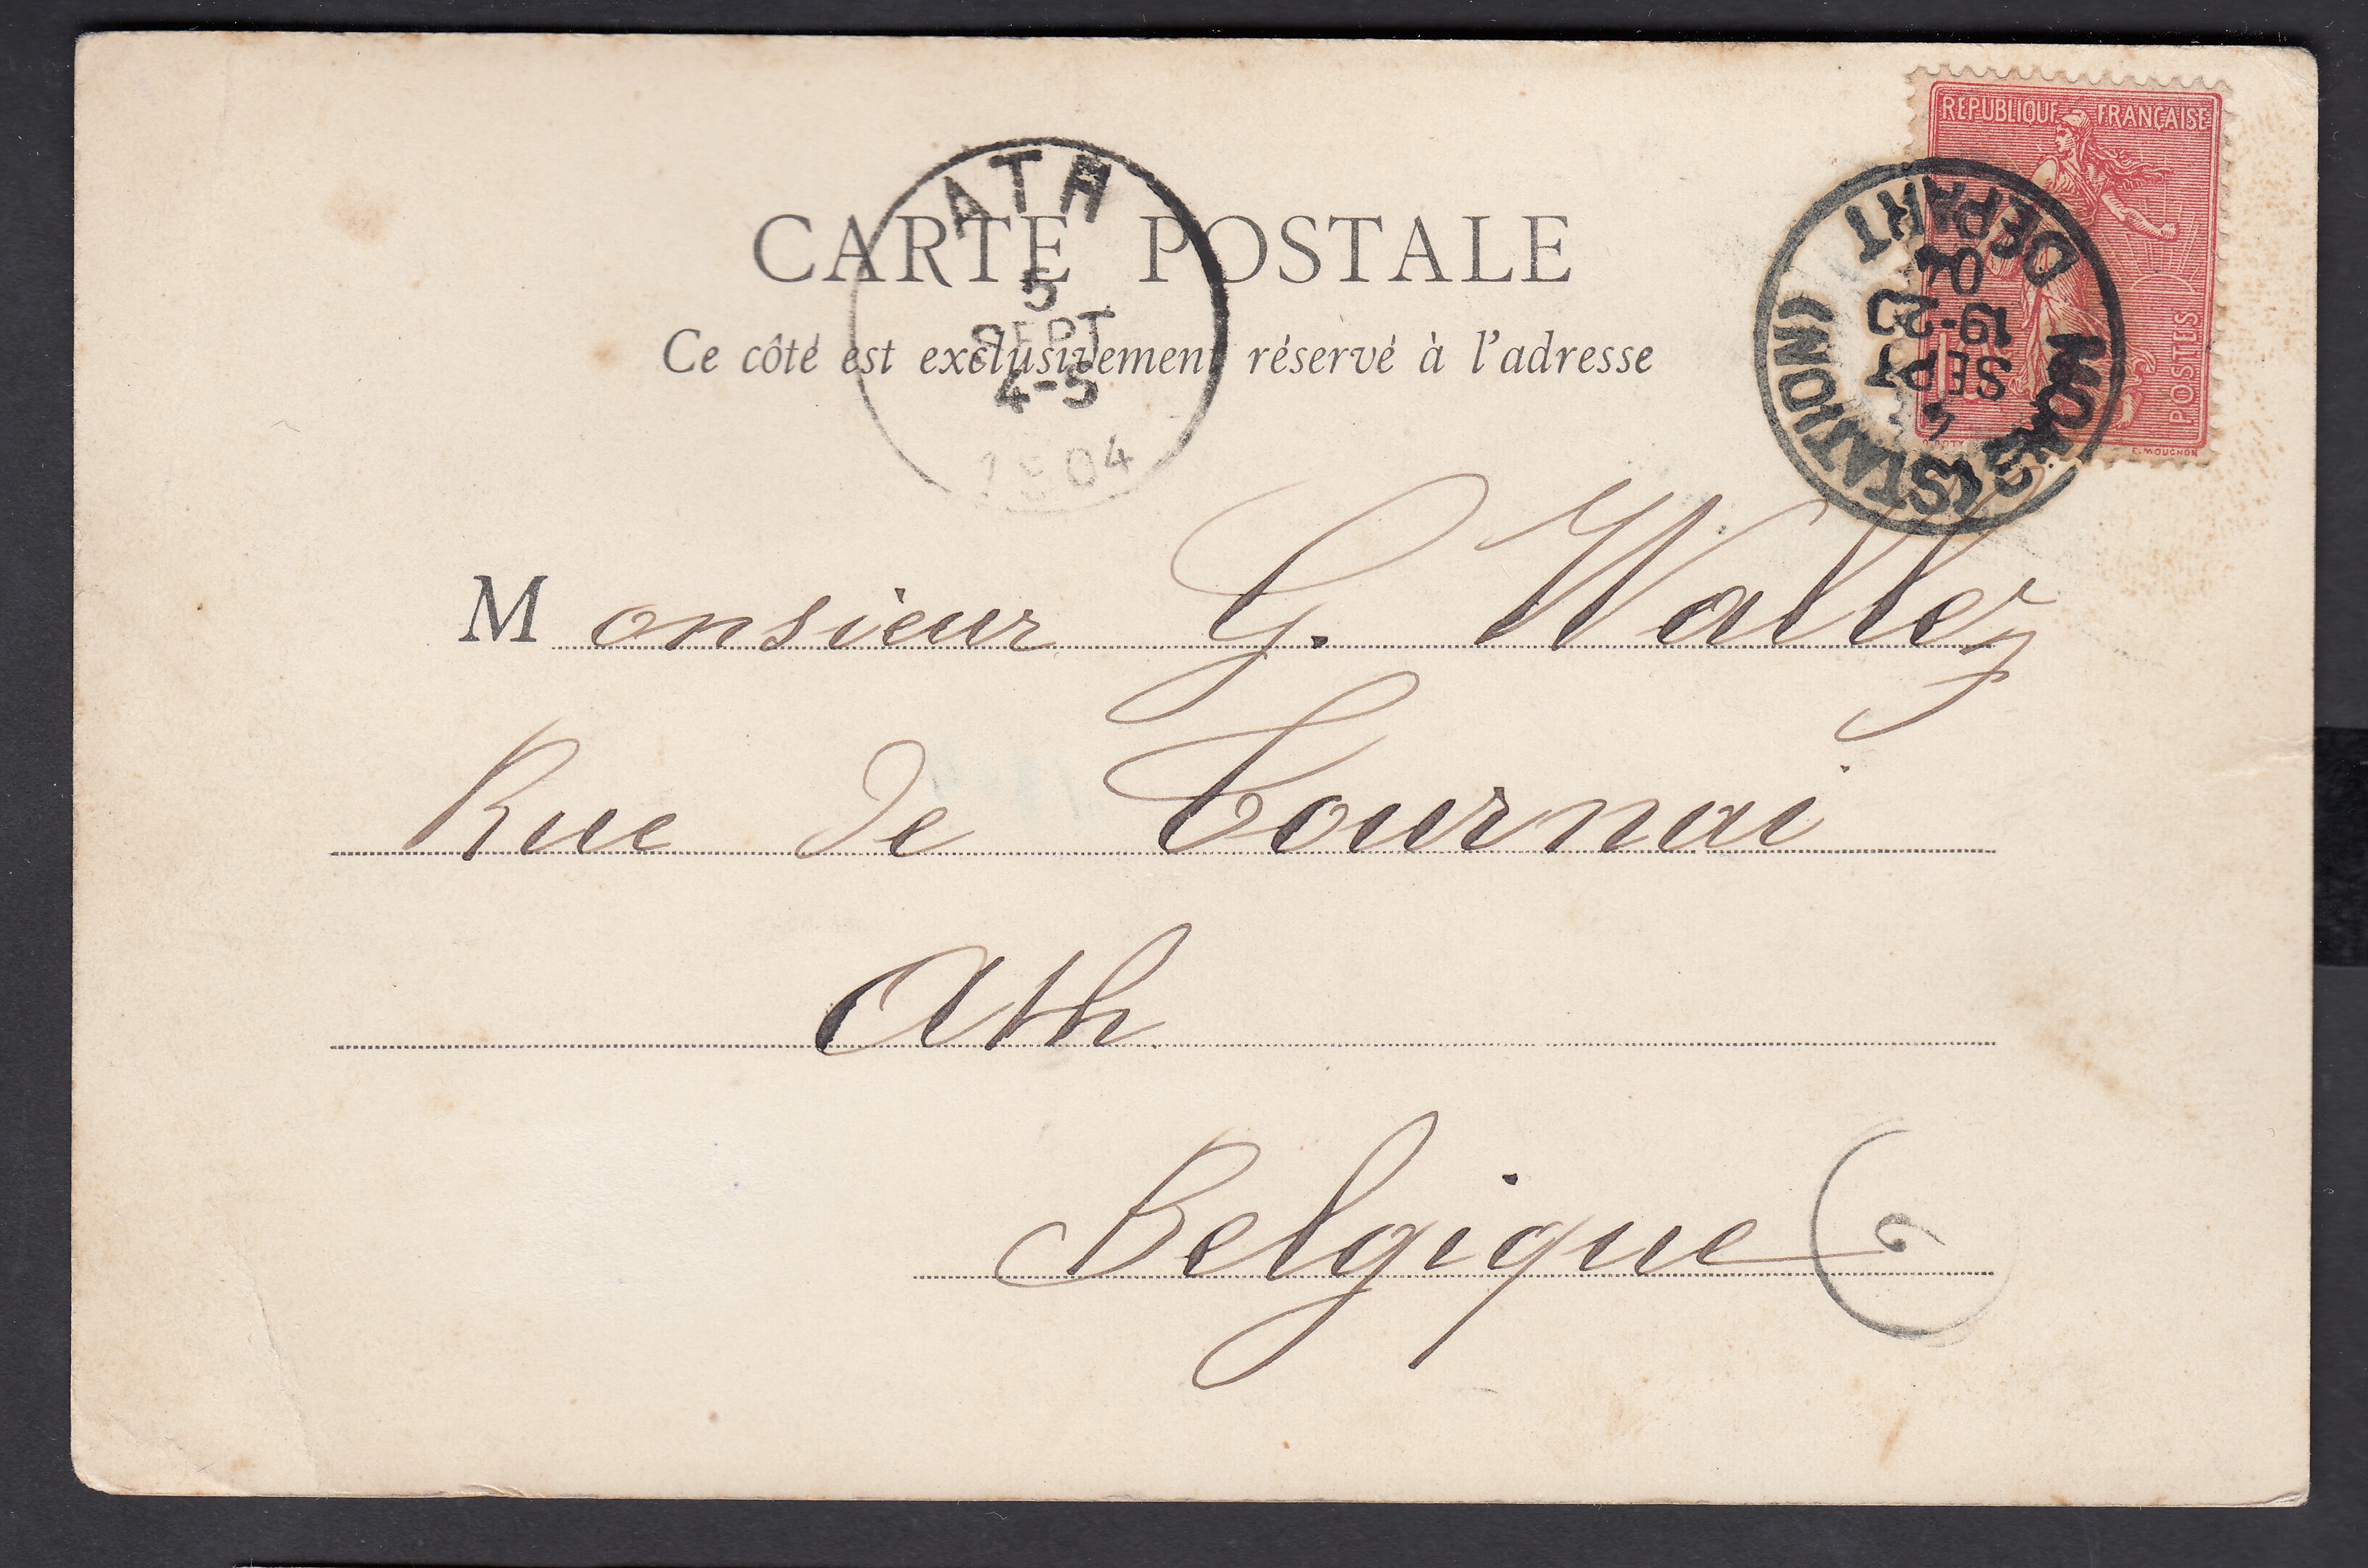 REPUBLIQUE FRANÇAISE
POSTES
E. MOUCHON
ATH
5
SEPT
4-5
1904
MONS (STATION)
4
SEPT
19-20
04
DEPART
CARTE POSTALE
Ce côté est exclusivement réservé à l'adresse
Monsieur G. Wallez
Rue de Tournai
Ath
Belgique
6